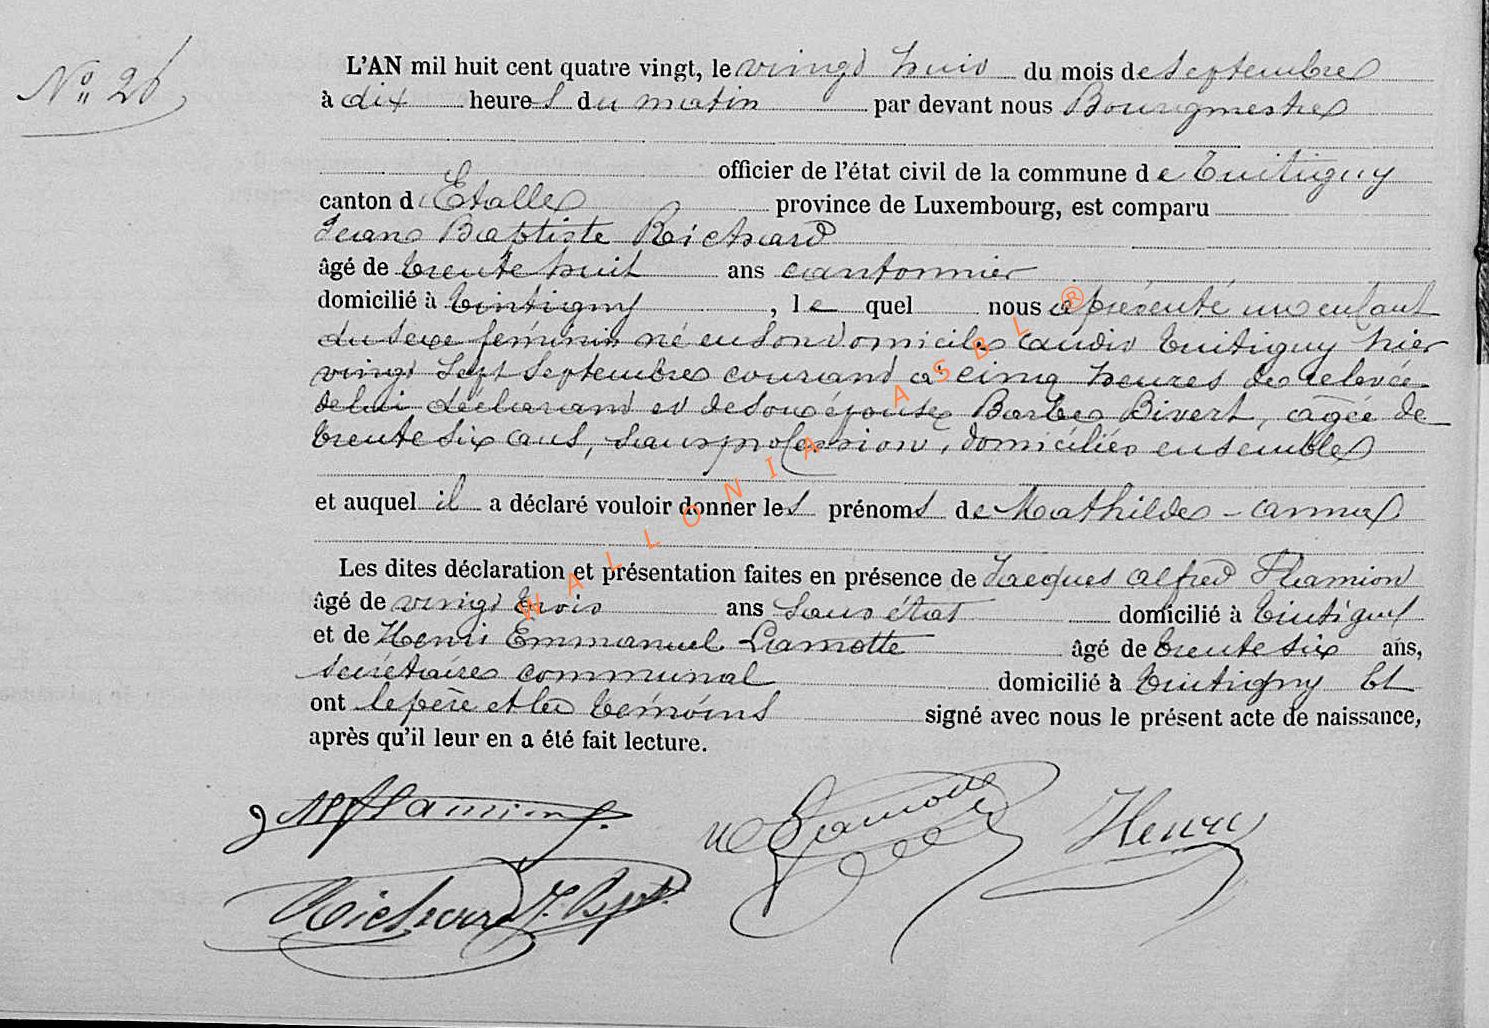 N° 26
L'AN mil huit cent quatre vingt, le vingt huit du mois de septembre
à dix heures du matin par devant nous Bourgmestre
officier de l'état civil de la commune de Tintigny
canton d'Etalle province de Luxembourg, est comparu
Jean Baptiste Richard
âgé de trente huit ans cantonnier
domicilié à Tintigny, le quel nous a présenté un enfant
du sexe féminin né en son domicile audit Tintigny hier
vingt sept septembre courant à cinq heures de relevée
de lui déclarant et de son épouse Barbe Bivert, agée de
trente six ans, sans profession, domiciliés ensemble
et auquel il a déclaré vouloir donner les prénoms de Mathilde-anna
Les dites déclaration et présentation faites en présence de Jacques Alfred Flamion
âgé de vingt trois ans sans état domicilié à Tintigny
et de Henri Emmanuel Lamotte âgé de trente six ans,
secrétaire communal domicilié à Tintigny Et
ont le père et les témoins signé avec nous le présent acte de naissance,
après qu'il leur en a été fait lecture.
Flamion
Lamotte
Henry
Richard J. Bpt.
WALLONIA ASBL ®